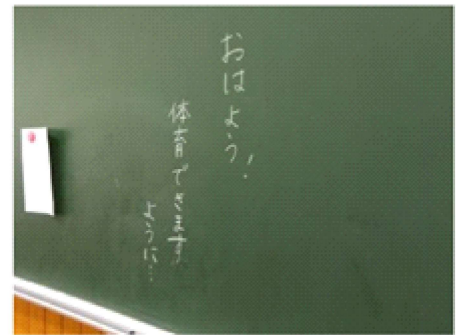 おはよう!
体育できます
ように…